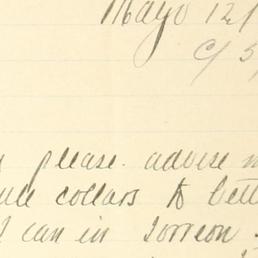 Mayo 12/
c/ S
please advise
collars to
can in Torreon